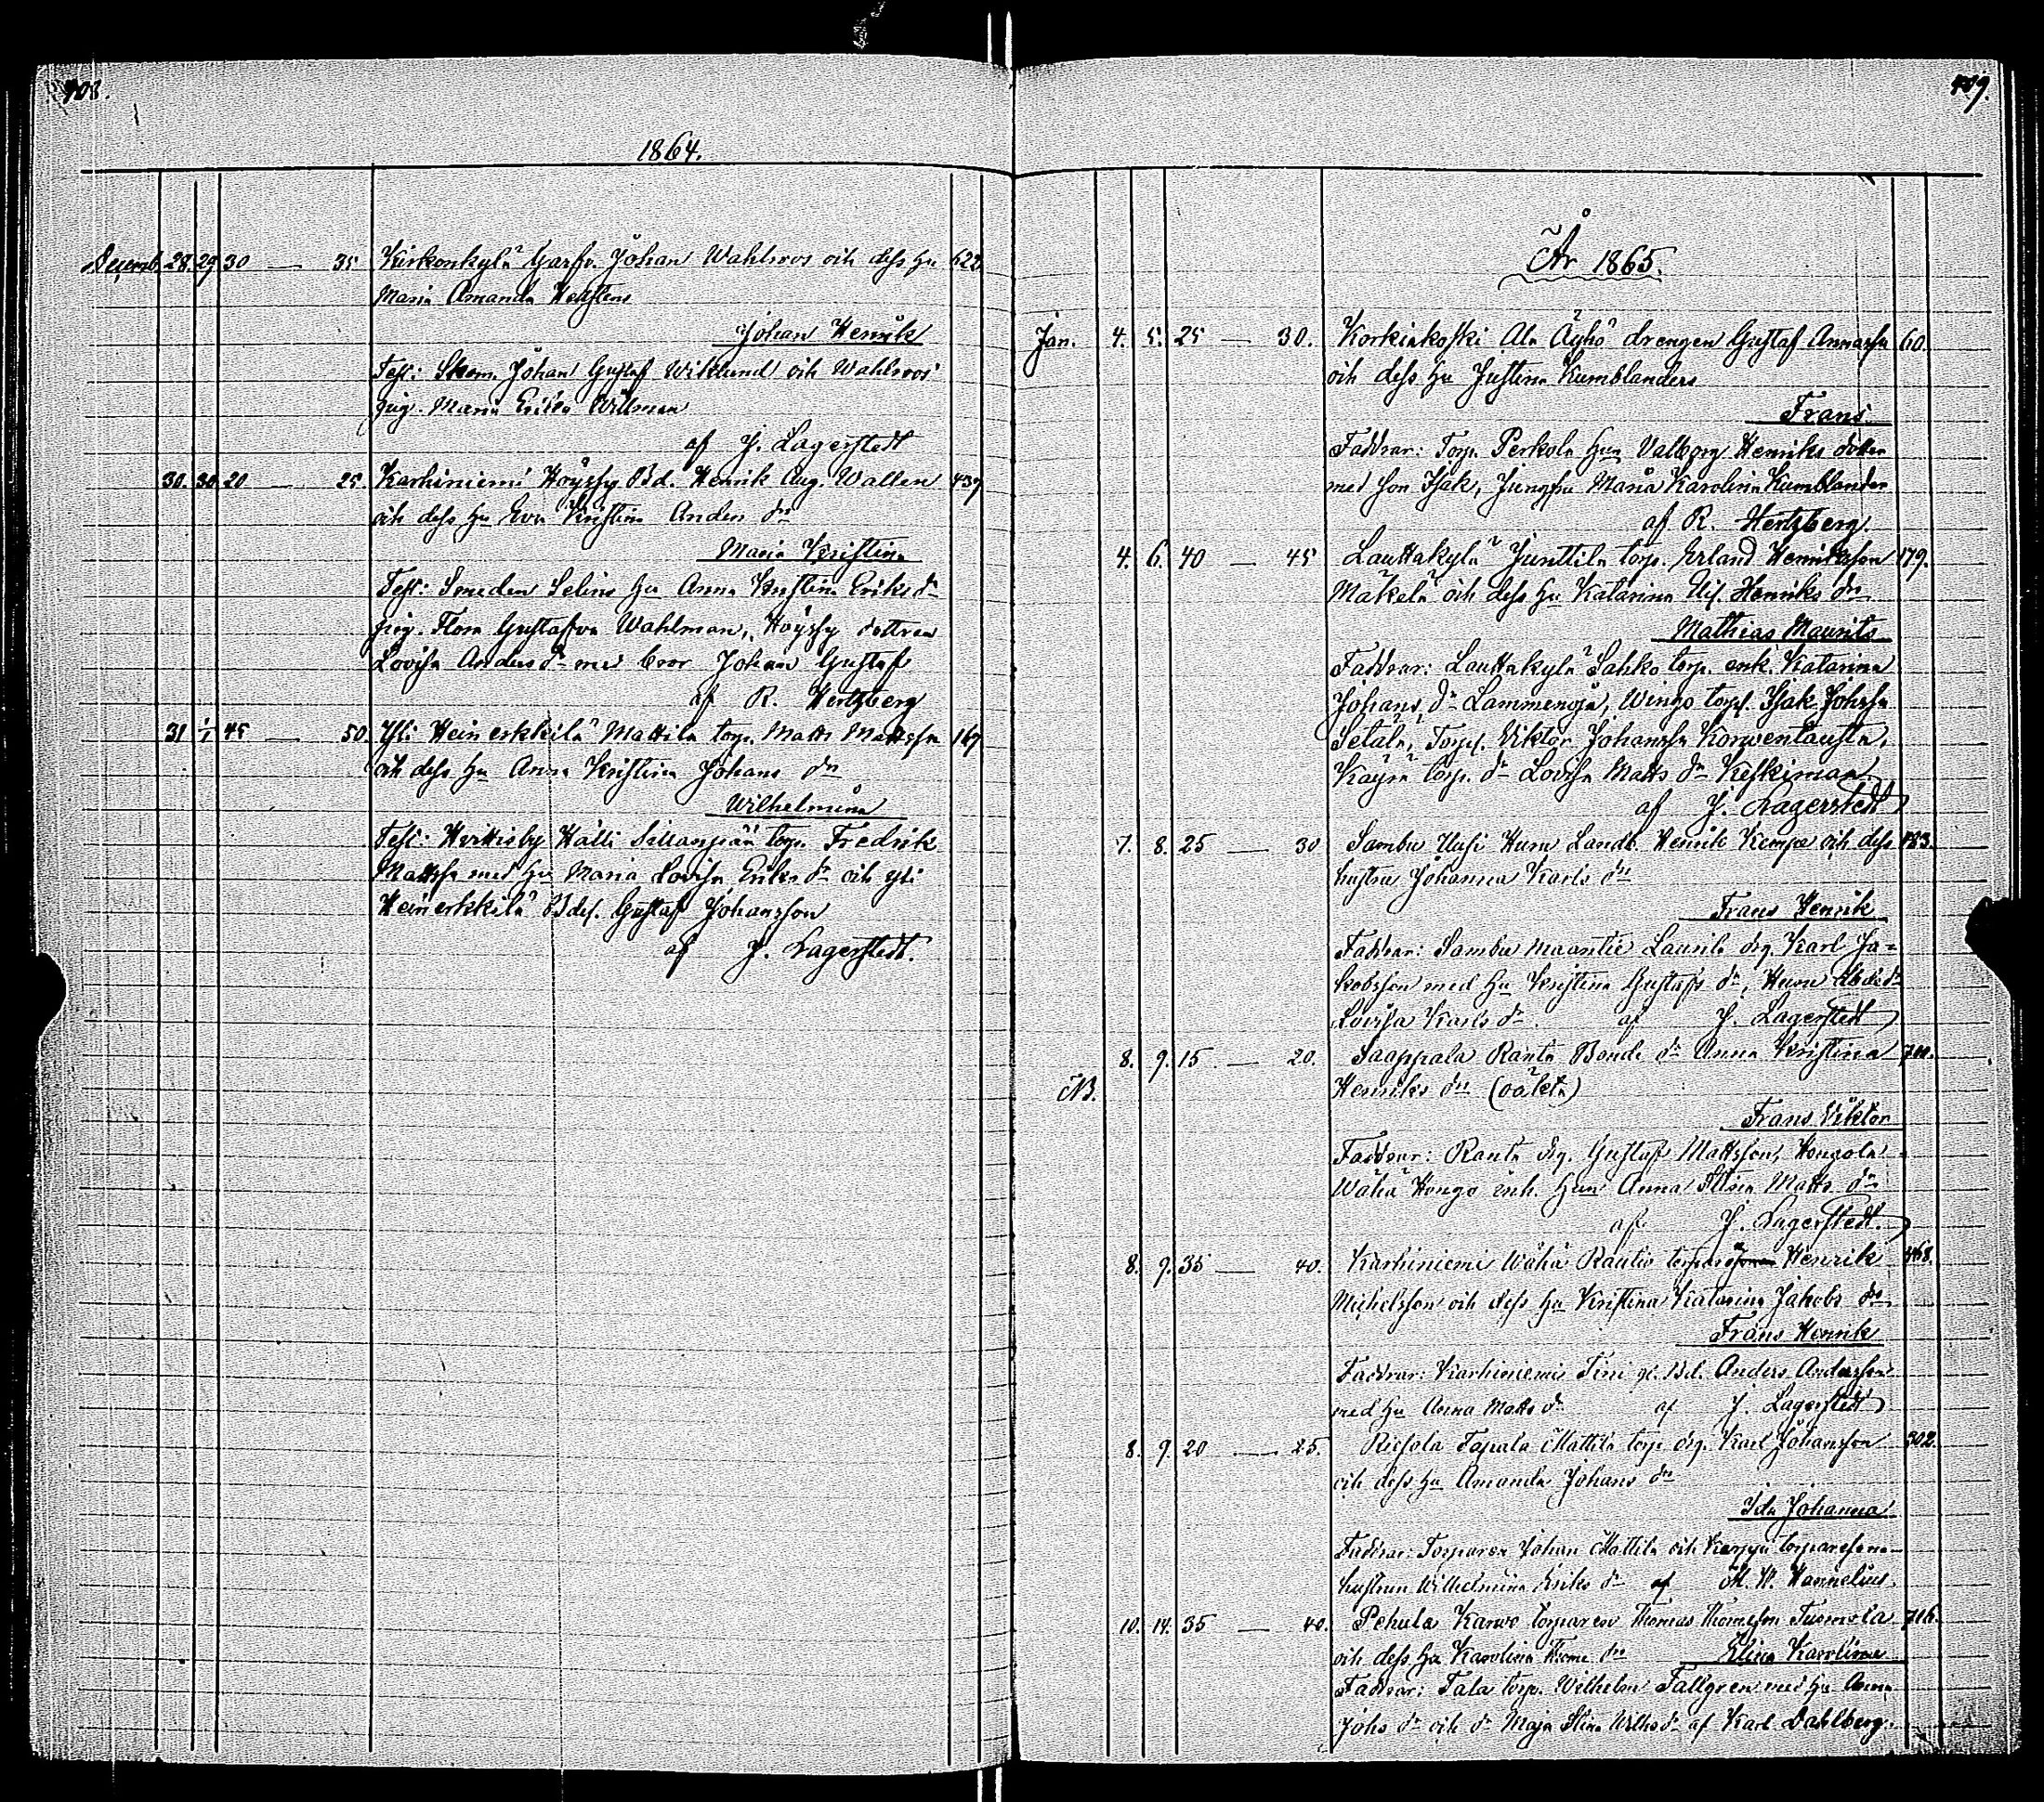 408.
1864.
Decemb. 28. 29 30 — 35 Kirkonkylä Garfv. Johan Wahlroos och dess hu 622
Maria Amanda
Johan Henrik
Test: Skom. Johan Gustaf Wiklund och Wahlroos'
pig. Maria Erika Willman
af J. Lagerstedt
30. 30 20 — 25. Karhiniemi Höyssy Bd. Henrik Aug. Wallen 437
och dess hu Eva Kristina Anders dr
Maria Kristina
Test: Smeden Selins hu Anna Kristina Eriks dr
pig. Flora Gustafva Wahlman, Höyssy dottren
Lovisa Anders dr med bror Johan Gustaf
af R. Hertzberg
31 1/1 45 — 50. Yli Heinerkkilä Mattila torp. Matts Mattssn 167
och dess hu Anna Kristina Johans dr
Wilhelmina
Test: Hvittisby Hälli Sillanpää torp. Fredrik
Mattssn med hu Maria Lovisa Eriks dr och yli
Heinerkkilä Bdes. Gustaf Johansson
af J. Lagerstedt.
409.
År 1865.
Jan. 4. 5. 25 — 30. Korkiakoski Ala Äyhö drengen Gustaf 60.
och dess hu Justina Kumblanders
Frans
Faddrar: Torp. Perkola hun Valborg Henriks dotter
med son Isak, Jungfru Maria Karolina Kumblander
af R. Hertzberg
4. 6. 40 — 45 Lauttakylä Junttila torp. Erland Henriksson 179.
Mäkelä och dess hu Katarina Ulf. Henriks dr
Mathias Maurits
Faddrar: Lauttakylä Sahko torp. enk. Katarina
Johans dr Lammenoja, Wingo torps. Isak Johssn
Setälä, Torps. Viktor Johanssn Korwentausta,
torp. dr Lovisa Matts dr Keskiman
af J. Lagerstedt
7. 8. 25 — 30 Sambu Uusi Huru Landb. Henrik Kempe och dess 183.
hustru Johanna Karls dr
Frans Henrik
Faddrar: Sambu Maantie Laurila drg. Karl Ja=
kobsson med hu Kristina Gustafs dr, Huru
Lovisa Karls dr af J. Lagerstedt
8. 9. 15. — 20. Saappala Ranta Bonde dr Anna Kristina
NB. Henriks dr (oäkta)
Frans Viktor
Faddrar: Ranta drg. Gustaf Mattsson, Hongola
Wähä Hongo inh. hun Anna Stina Matts dr
af J. Lagerstedt.
8. 9. 35 — 40. Karhiniemi Wähä Rautio torparen Henrik 468.
Michelsson och dess hu Kristina Katarina Jakobs dr
Frans Henrik
Faddrar: Karhiniemi Bd. Anders Andersson
med hu Anna Matts dr af J. Lagerstedt
8. 9. 20 — 25. Riesola Tapala Mattila torp. drg. Karl Johansson 502.
och dess hu Amanda Johans dr
Ida Johanna
Faddrar: Torparen Johan Mattila och
hustrun Wilhelmina Eriks dr af M. W. Wannelius.
10. 14. 35 — 40. Pehula Karvo torparen Thomas Thomasson Tuomola 716.
och dess hu Karolina Thome dr Elina Karolina
Faddrar: Tala torp. Wilhelm Tallgren med hu Anna
Johs dr och dr Maja Stina Wilhs dr af Karl Dahlberg.